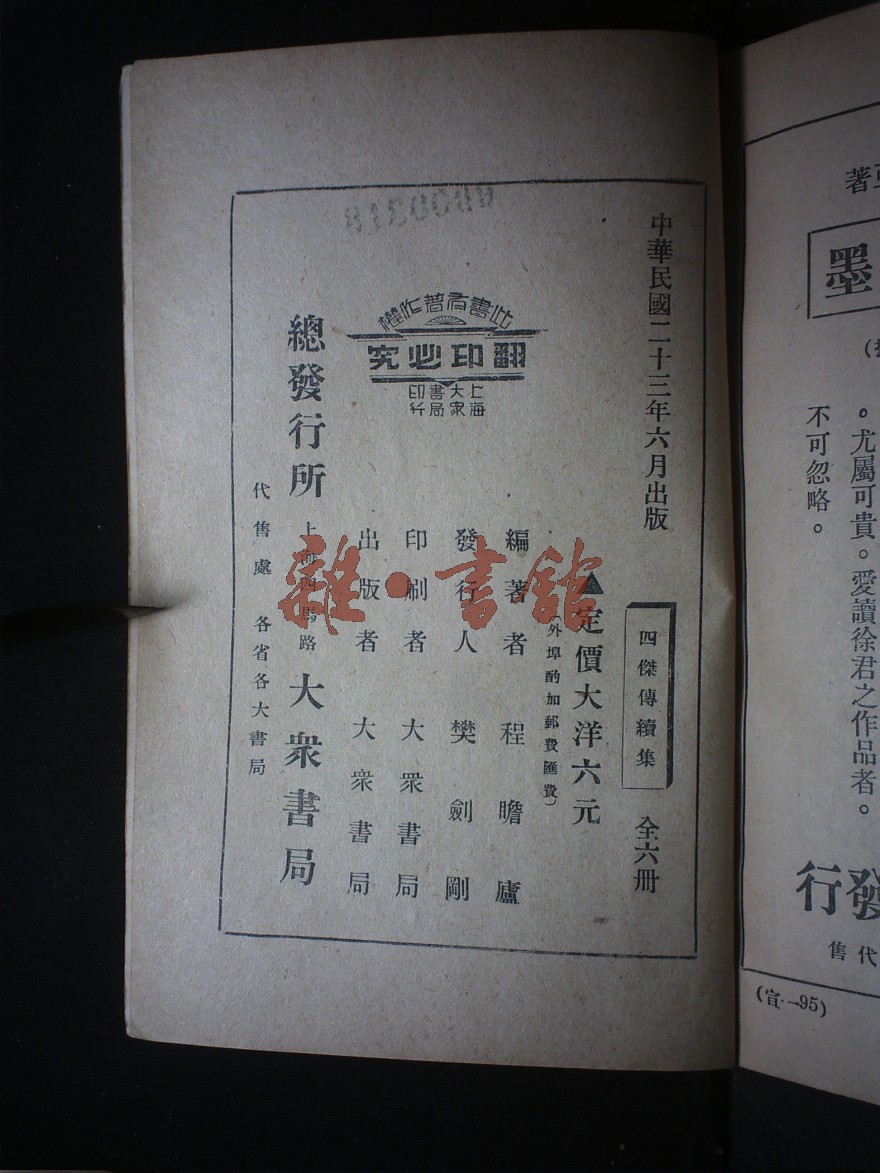 中華民國二十三年六月出版
四傑傳續集
全六冊
▲定價大洋六元
（外埠酌加郵費匯費）
編著者 程瞻廬
發行人 樊劍剛
印刷者 大衆書局
出版者 大衆書局
總發行所 上海四馬路 大衆書局
代售處 各省各大書局
此書有著作權
翻印必究
上海
大衆
書局
印行
雜·書館
著
墨
。尤屬可貴。愛讀徐君之作品者。
不可忽略。
發行
代售
(宣·一95)